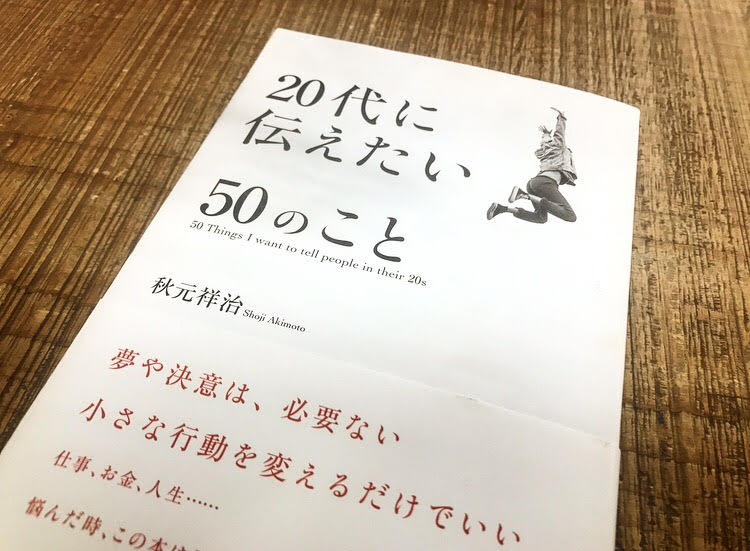 20代に
伝えたい
50のこと
50 Things I want to tell people in their 20s
秋元祥治 Shoji Akimoto
夢や決意は、必要ない
小さな行動を変えるだけでいい
仕事、お金、人生……
悩んだ時、この本は